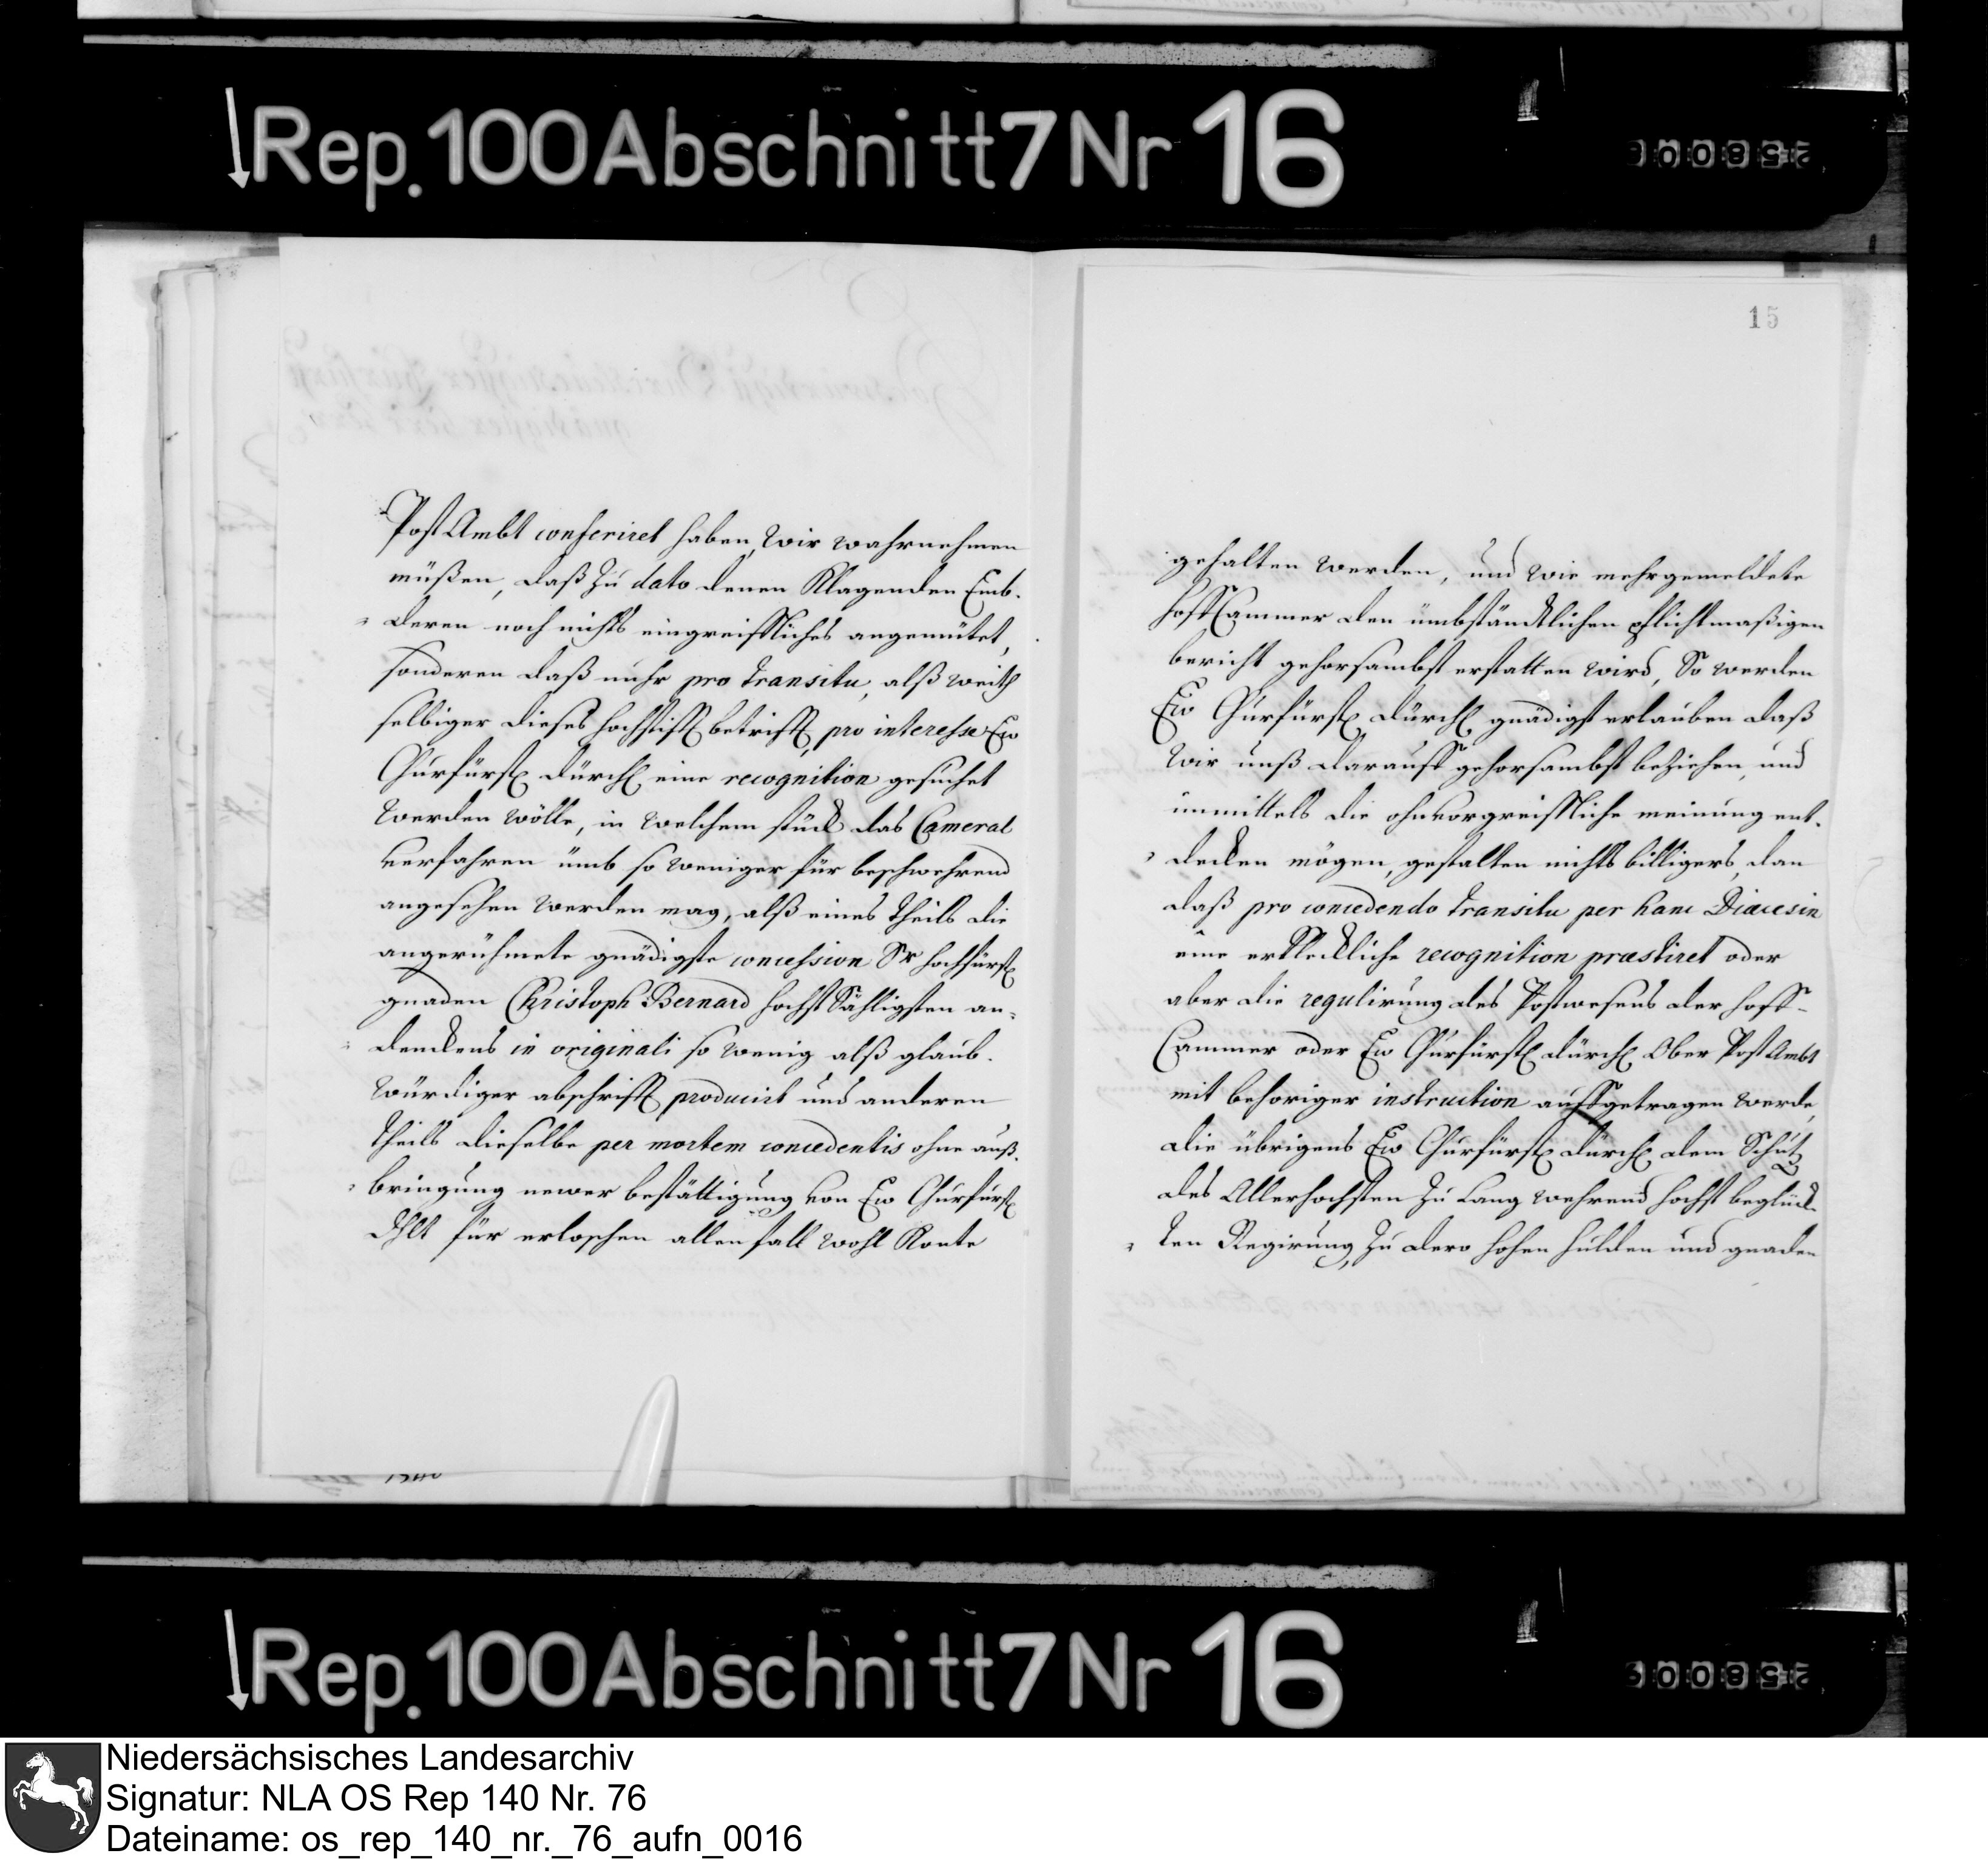 Rep. 100 Abschnitt 7 Nr 16
Post Ambt conferiret haben, wir wahrnehmen
müßen, daß zu dato denen Klagenden Emb-
deren noch nichts eingreiffliches angemütet,
sonderen daß nuhr pro transitu, alß weith
selbiger dieses hochstifft betrifft, pro interesse Ew
Churfürstl dürchl eine recognition gesuchet
werden wölle, in welchem stück das Cameral
verfahren ümb so weniger für beschwehrend
angesehen werden mag, alß eines theils die
angerühmete gnädigste concession Sr hochfürstl
gnaden Christoph Bernard hochst Sähligsten an-
denckens in originali so wenig alß glaub-
würdiger abschrifft producirt und anderen
theils dieselbe per mortem concedentis ohne auß-
bringung newer bestättigung von Ew Churfürstl
Dhlt für erloschen allenfall wohl Konte
15
gehalten werden, und wie mehrgemeldete
hoffCammer den ümbständtlichen pflichtmaßigen
bericht gehorsambst erstatten wird, So werden
Ew Churfürstl dürchl gnädigst erlauben daß
wir unß darauff gehorsambst beziehen, und
inmittels die ohnvorgreiffliche meinung ent-
decken mögen, gestalten nichts billigers, dan
daß pro concedendo transitu per hanc Diœcesin
eine erkleckliche recognition præstiret oder
aber die regulirung des Postwesens der hoff-
Cammer oder Ew Churfürstl dürchl Ober Post Ambt
mit behoriger instruction auffgetragen werde,
die übrigens Ew Churfürstl dürchl dem Schutz
des Allerhochsten zu Lang wehrend hochst beglück-
ten Regirung, zu dero hohen hulden und gnaden
Rep. 100 Abschnitt 7 Nr 16
Niedersächsisches Landesarchiv
Signatur: NLA OS Rep 140 Nr. 76
Dateiname: os_rep_140_nr._76_aufn_0016